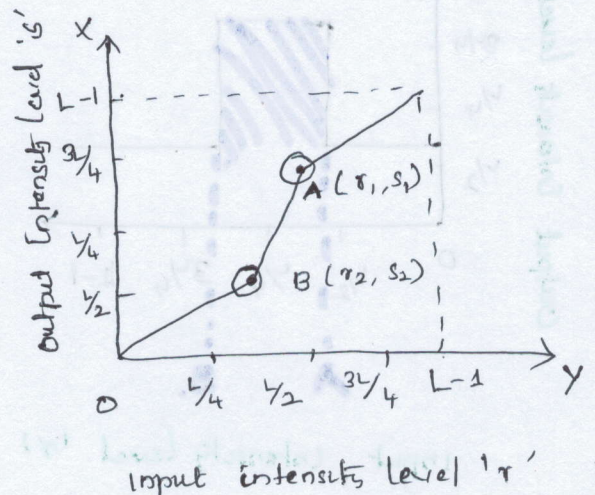 X
Output Intensity Level 's'
L-1
3L/4
L/4
L/2
A (r1, s1)
B (r2, s2)
0
L/4
L/2
3L/4
L-1
Y
Input intensity level 'r'